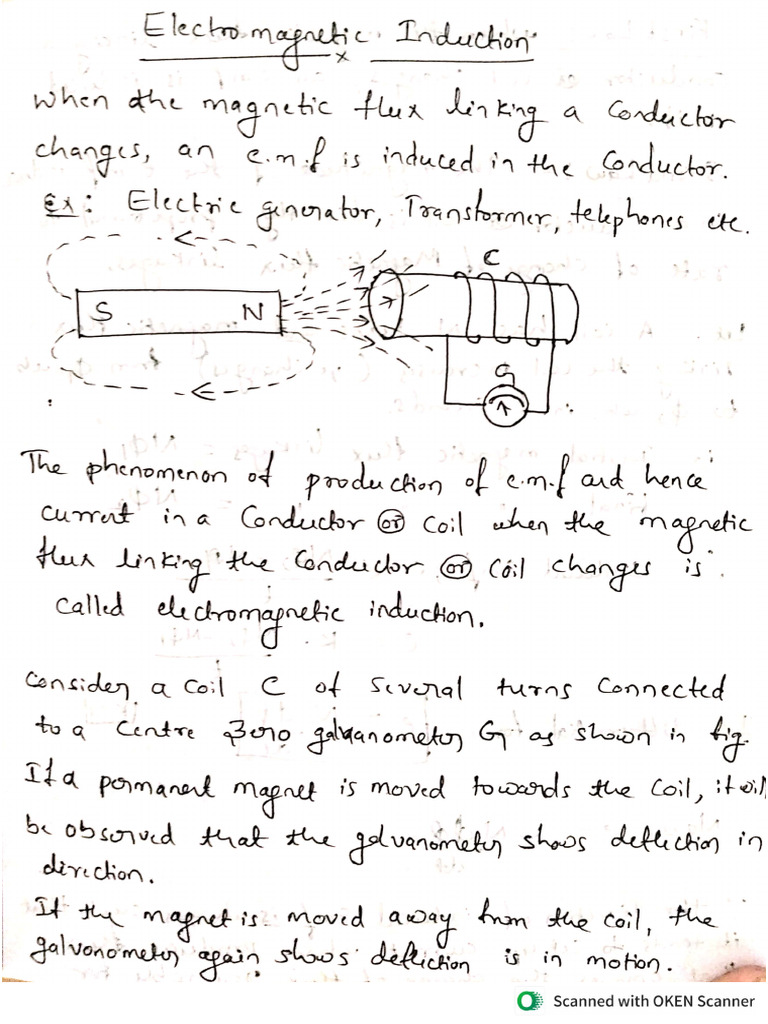 Electromagnetic Induction
When the magnetic flux linking a conductor
changes, an e.m.f is induced in the conductor.
Ex: Electric generator, Transformer, telephones etc.
C
S N
G
The phenomenon of production of e.m.f and hence
current in a conductor or coil when the magnetic
flux linking the conductor or coil changes is
called electromagnetic induction.
Consider a coil C of several turns connected
to a centre zero galvanometer G as shown in fig.
If a permanent magnet is moved towards the coil, it will
be observed that the galvanometer shows deflection in
direction.
If the magnet is moved away from the coil, the
galvonometer again shows deflection is in motion.
Scanned with OKEN Scanner